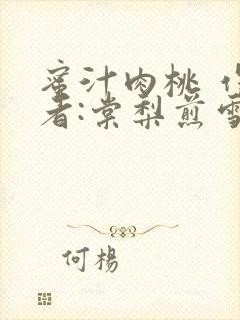 蜜汁肉桃 作
者:棠梨煎雪
何楊